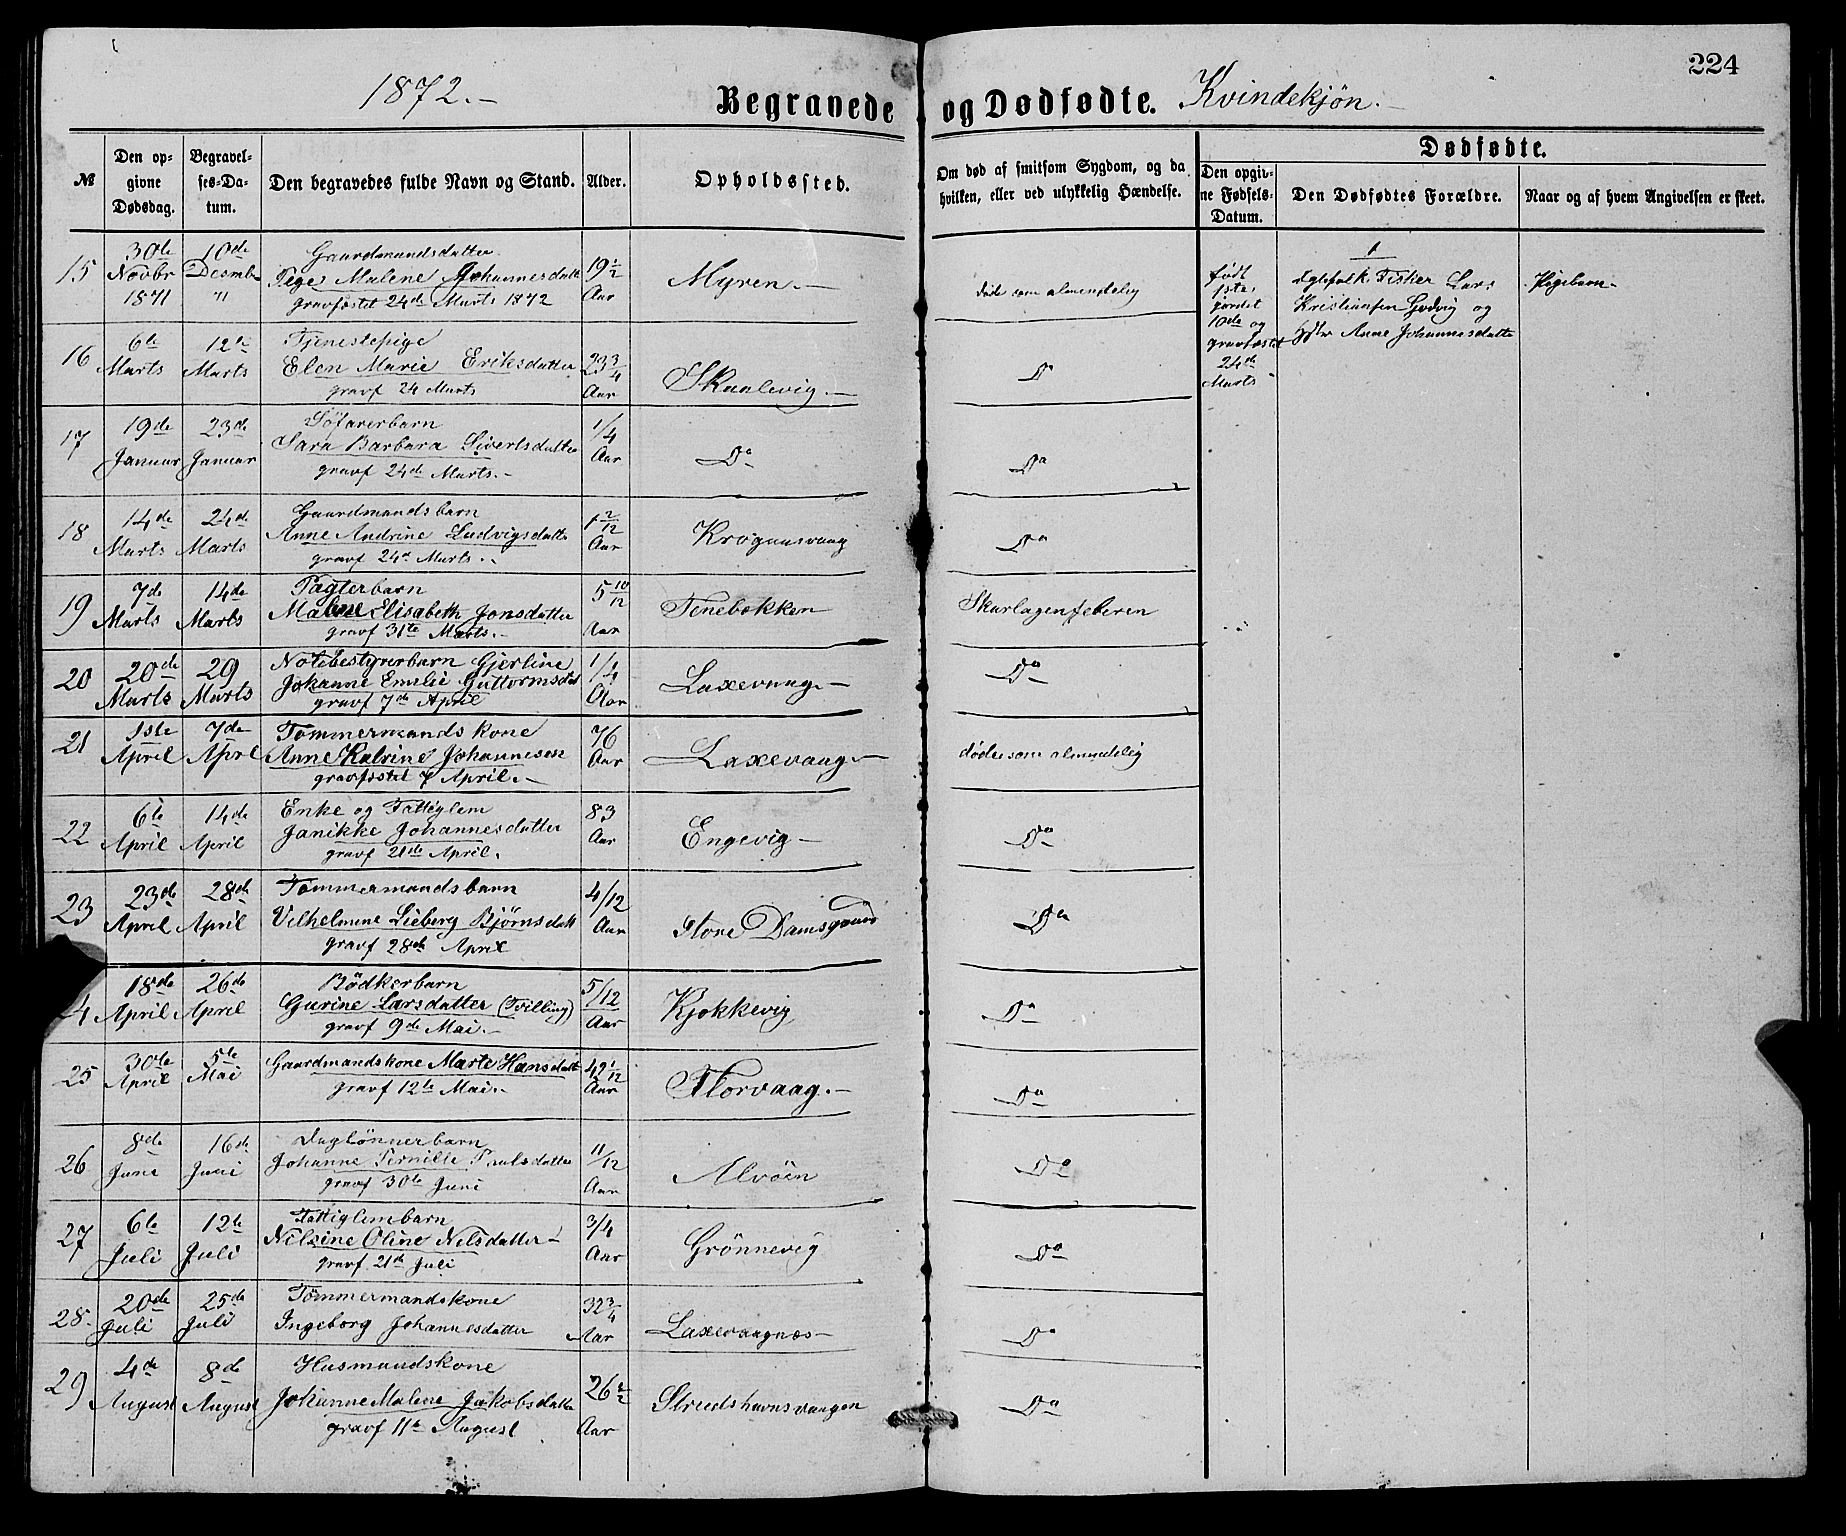 224
1872.-
Begravede og Dødfødte. Kvindekjön.-
№
Den opgivne Dødsdag.
Begravelses-Datum.
Den begravedes fulde Navn og Stand.
Alder.
Opholdssted.
Om død af smitsom Sygdom, og da hvilken, eller ved ulykkelig Hændelse.
Dødfødte.
Den opgivne Fødsels-Datum.
Den Dødfødtes Forældre.
Naar og af hvem Angivelsen er skeet.
15 30te Novbr 1871 10de Desmb "
Gaardmandsdatter
Malene Johannesdatt
gravfæstet 24de Marts 1872
19 1/2 Aar Myren.-
døde som almindelig
født
1ste,
10de og
gravfæstet
24de
Marts
1
Egtefolk Fisker Lars
Kristiansen og
Anne Johannesdatte
Pigebarn-
16 6te Marts 12te Marts
Tjenestepige
Elen Marie Eriksdatter
gravf 24 Marts
23 3/4 Aar Skaalevig.- Do
17 19de Januar 23de Januar
Söfarerbarn
Sara Barbara Sivertsdatter
gravf 24de Marts.-
1/4 Aar Do Do
18 14de Marts 24de Marts
Gaardmandsbarn
Anne Andrine Ludvigsdatte
gravf 24de Marts.
1 2/12 Aar Do
19 7de Marts 14de Marts
Pagterbarn
Malene Elisabeth Jonsdatter
gravf 31te Marts.-
5 10/12 Aar Tenebekken Skarlagenfeberen
20 20de Marts 29 Marts
Notebestyrerbarn Gjerline
Johanne Emilie Guttormsdat
gravf 7de April
1/4 Aar Laxevaag.- Do
21 1ste April 7de April
Tømmermandskone
Anne Katrine Johannesen
gravfæstet 7 April.-
76 Aar Laxevaag.- døde som almindelig
22 6te April 14de April
Enke og Fattiglem
Janikke Johannesdatter
gravf 21de April.
83 Aar Engevig- Do
23 23de April 28de April
Tømmermandsbarn
Vilhelmine Lieberg Bjørnsdatt
gravf 28de April
4/12 Aar Store Damsgaard Do
4 18de April 26de April
Bödkerbarn
Gurine Larsdatter (Tvilling)
gravf 9de Mai.-
5/12 Aar Kjøkkevig Do
25 30te April 5te Mai
Gaardmandskone Marte Hansdatt
gravf 12te Mai.-
42 1/12 Aar Florvaag.- Do
26 8de Juni 16de Juni
Daglönnerbarn
Johanne Pernille Paulsdatter
gravf 30te Juni
11/12 Aar Alvöen Do
27 6te Juli 12te Juli
Fattiglembarn
Nilsine Oline Nilsdatter-
gravf 21de Juli
3/4 Aar Grönnevig Do
28. 20de Juli 25de Juli
Tömmermandskone
Ingeborg Johannesdatter
32 3/4 Aar Laxevaagnæs- Do
29 4de August 8de August
Husmandskone
Johanne Malene Jakobsdatte
gravf 11te August
26 Aar Do